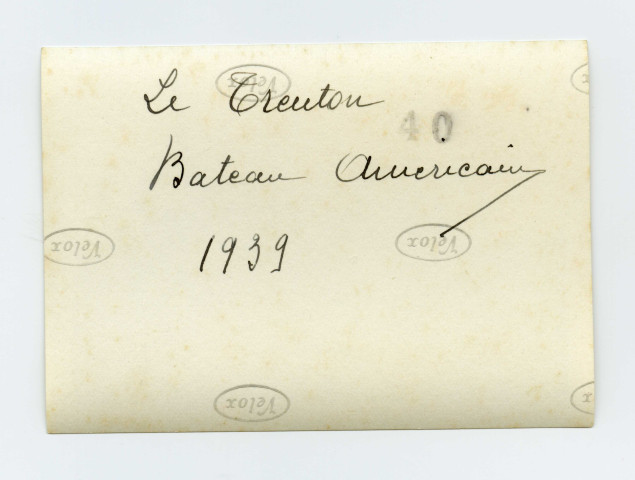 Velox
Le Trenton
40
Bateau Americain
Velox
Velox
1939
Velox